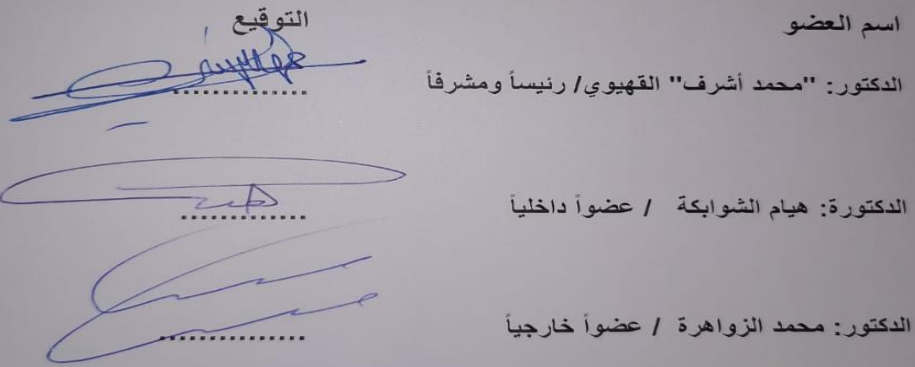 اسم العضو التوقيع
الدكتور: "محمد أشرف" القهيوي/ رئيساً ومشرفاً ...............
الدكتورة: هيام الشوابكة / عضواً داخلياً ...............
الدكتور: محمد الزواهرة / عضواً خارجياً ...............